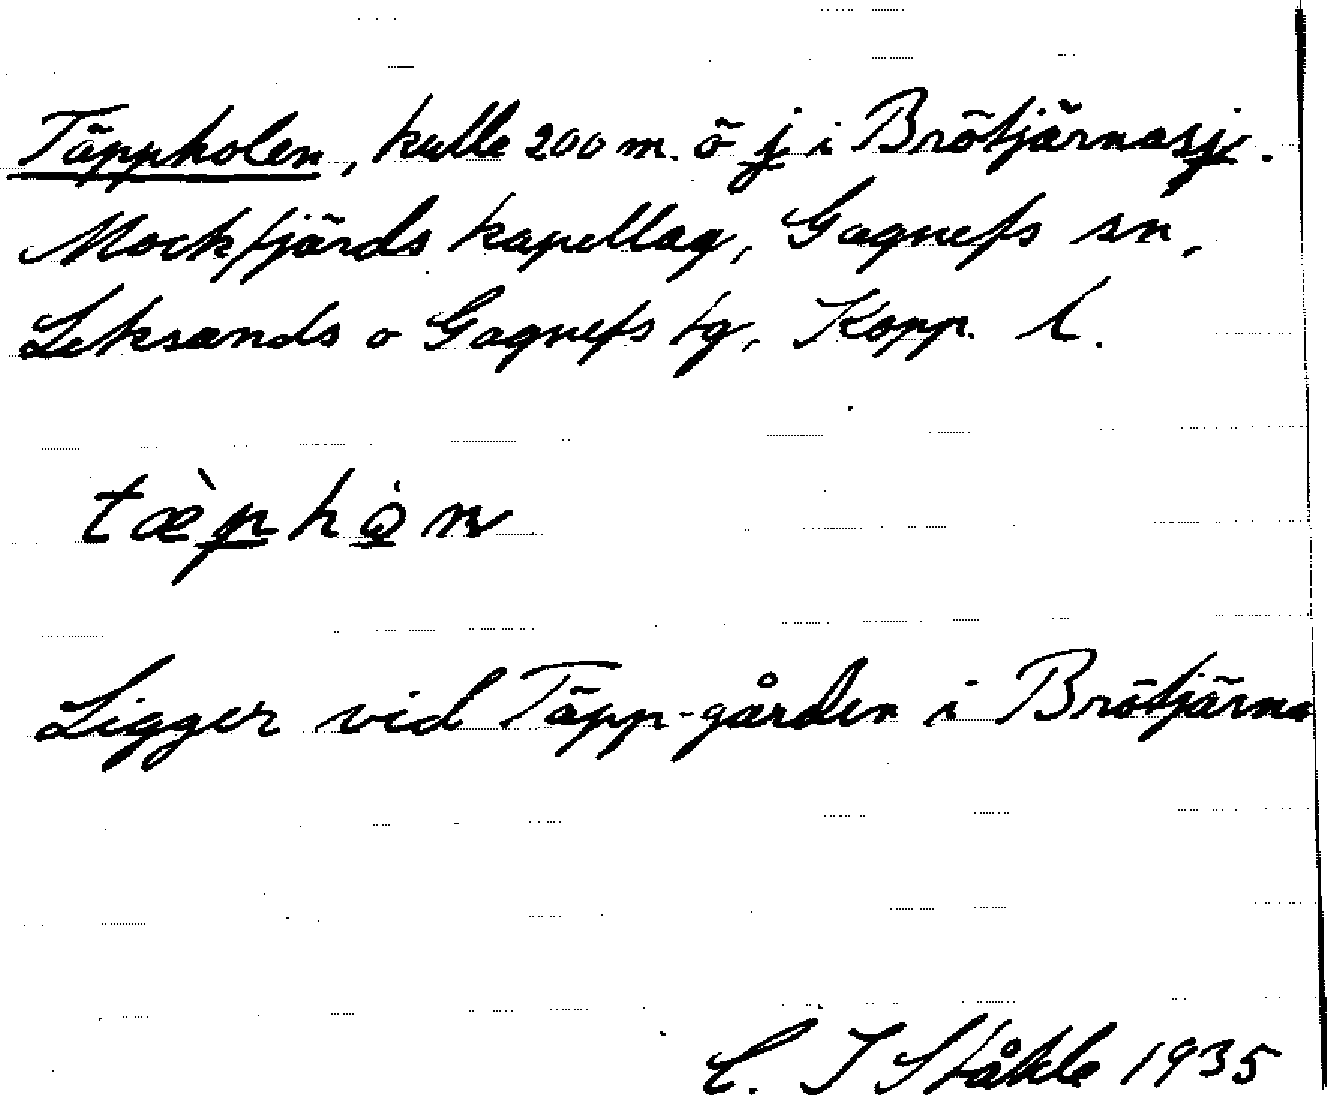 Täppholen, kulle 200 m. ö j i Brötjärnasj.
Mockfjärds kapellag, Gagnefs sn,
Leksands o Gagnefs tg, Kopp. l.
tæ̀phǫ̇n
Ligger vid Täpp-gården i Brötjärna
C. J Ståhle 1935